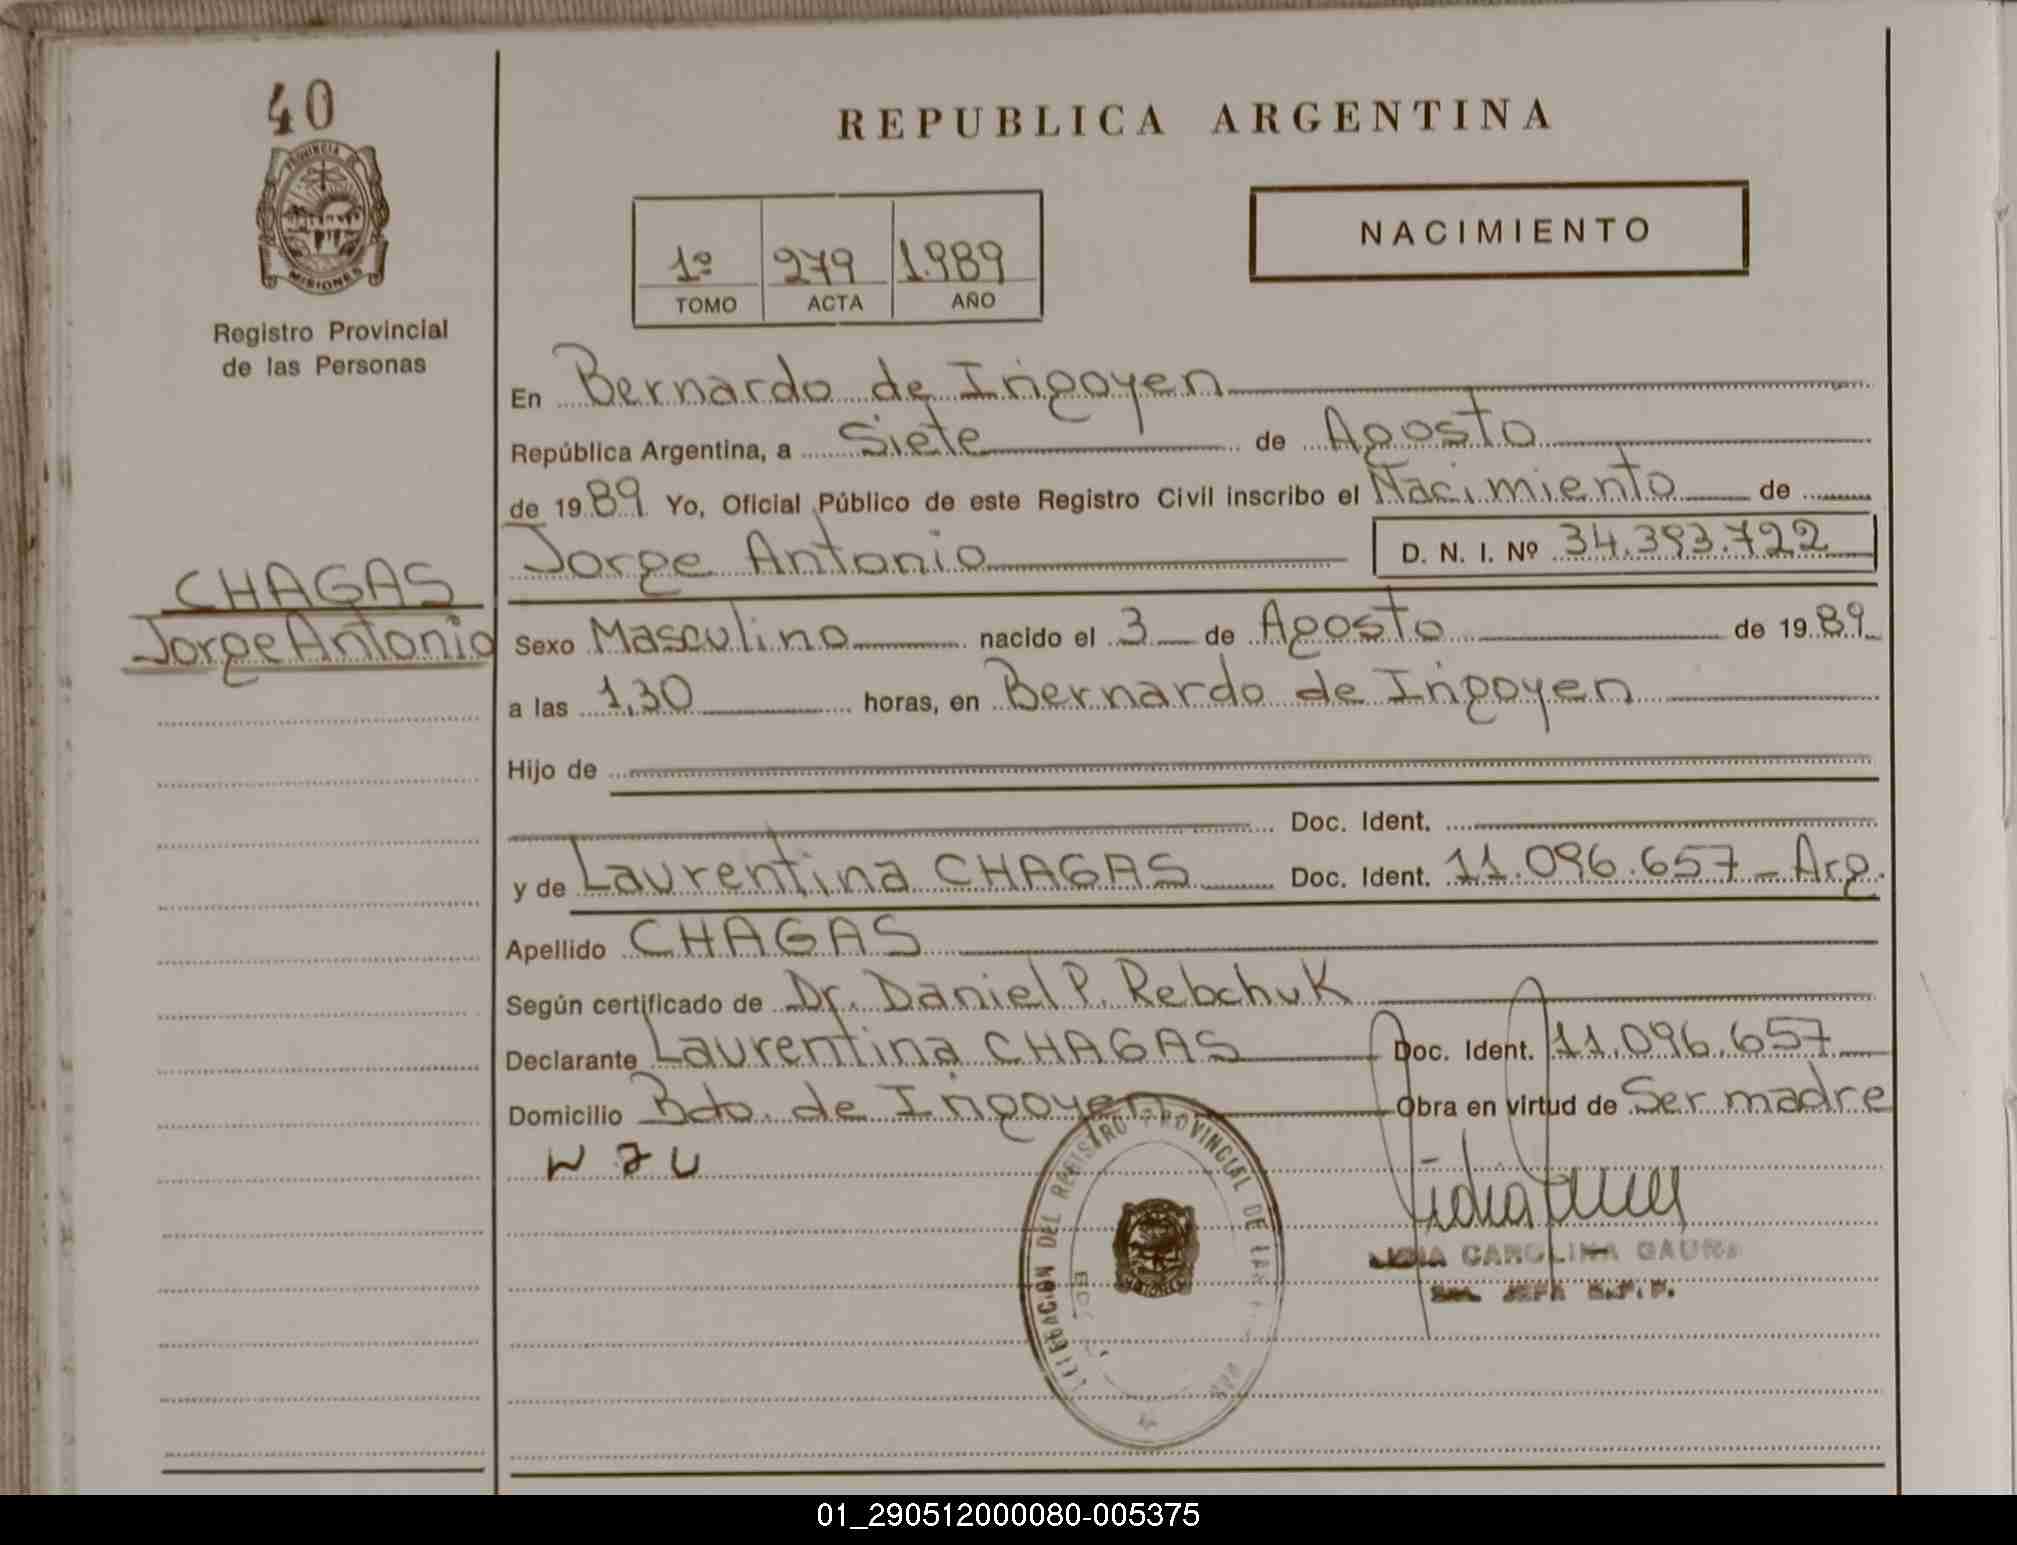 40
PROVINCIA DE
MISIONES
Registro Provincial
de las Personas
CHAGAS
Jorge Antonio
REPUBLICA ARGENTINA
NACIMIENTO
1º 279 1.989
TOMO ACTA AÑO
En Bernardo de Irigoyen
República Argentina, a Siete de Agosto
de 1989 Yo, Oficial Público de este Registro Civil inscribo el Nacimiento de
Jorge Antonio D. N. I. Nº 34.393.722
Sexo Masculino nacido el 3 de Agosto de 1989
a las 1,30 horas, en Bernardo de Irigoyen
Hijo de
Doc. Ident.
y de Laurentina CHAGAS Doc. Ident. 11.096.657 - Arg.
Apellido CHAGAS
Según certificado de Dr. Daniel P. Rebchuk
Declarante Laurentina CHAGAS Doc. Ident. 11.096.657
Domicilio Bdo. de Irigoyen Obra en virtud de Ser madre
DELEGACION DEL REGISTRO PROVINCIAL DE LAS
CAROLINA
JEFA
01_290512000080-005375